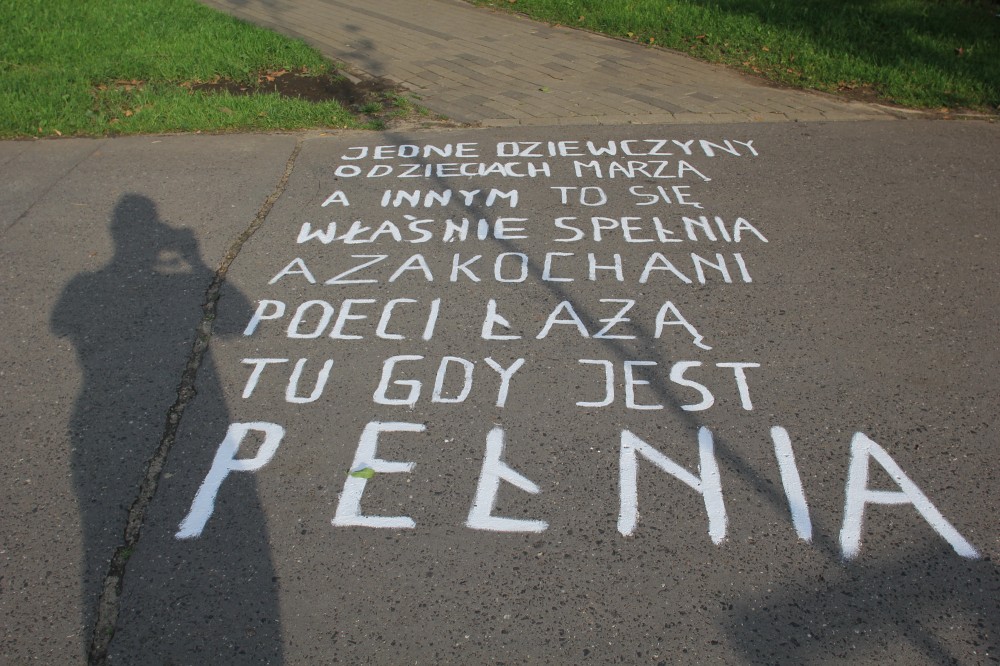 JEDNE DZIEWCZYNY
O DZIECIACH MARZĄ
A INNYM TO SIĘ
WŁAŚNIE SPEŁNIA
A ZAKOCHANI
POECI ŁAŻĄ
TU GDY JEST
PEŁNIA